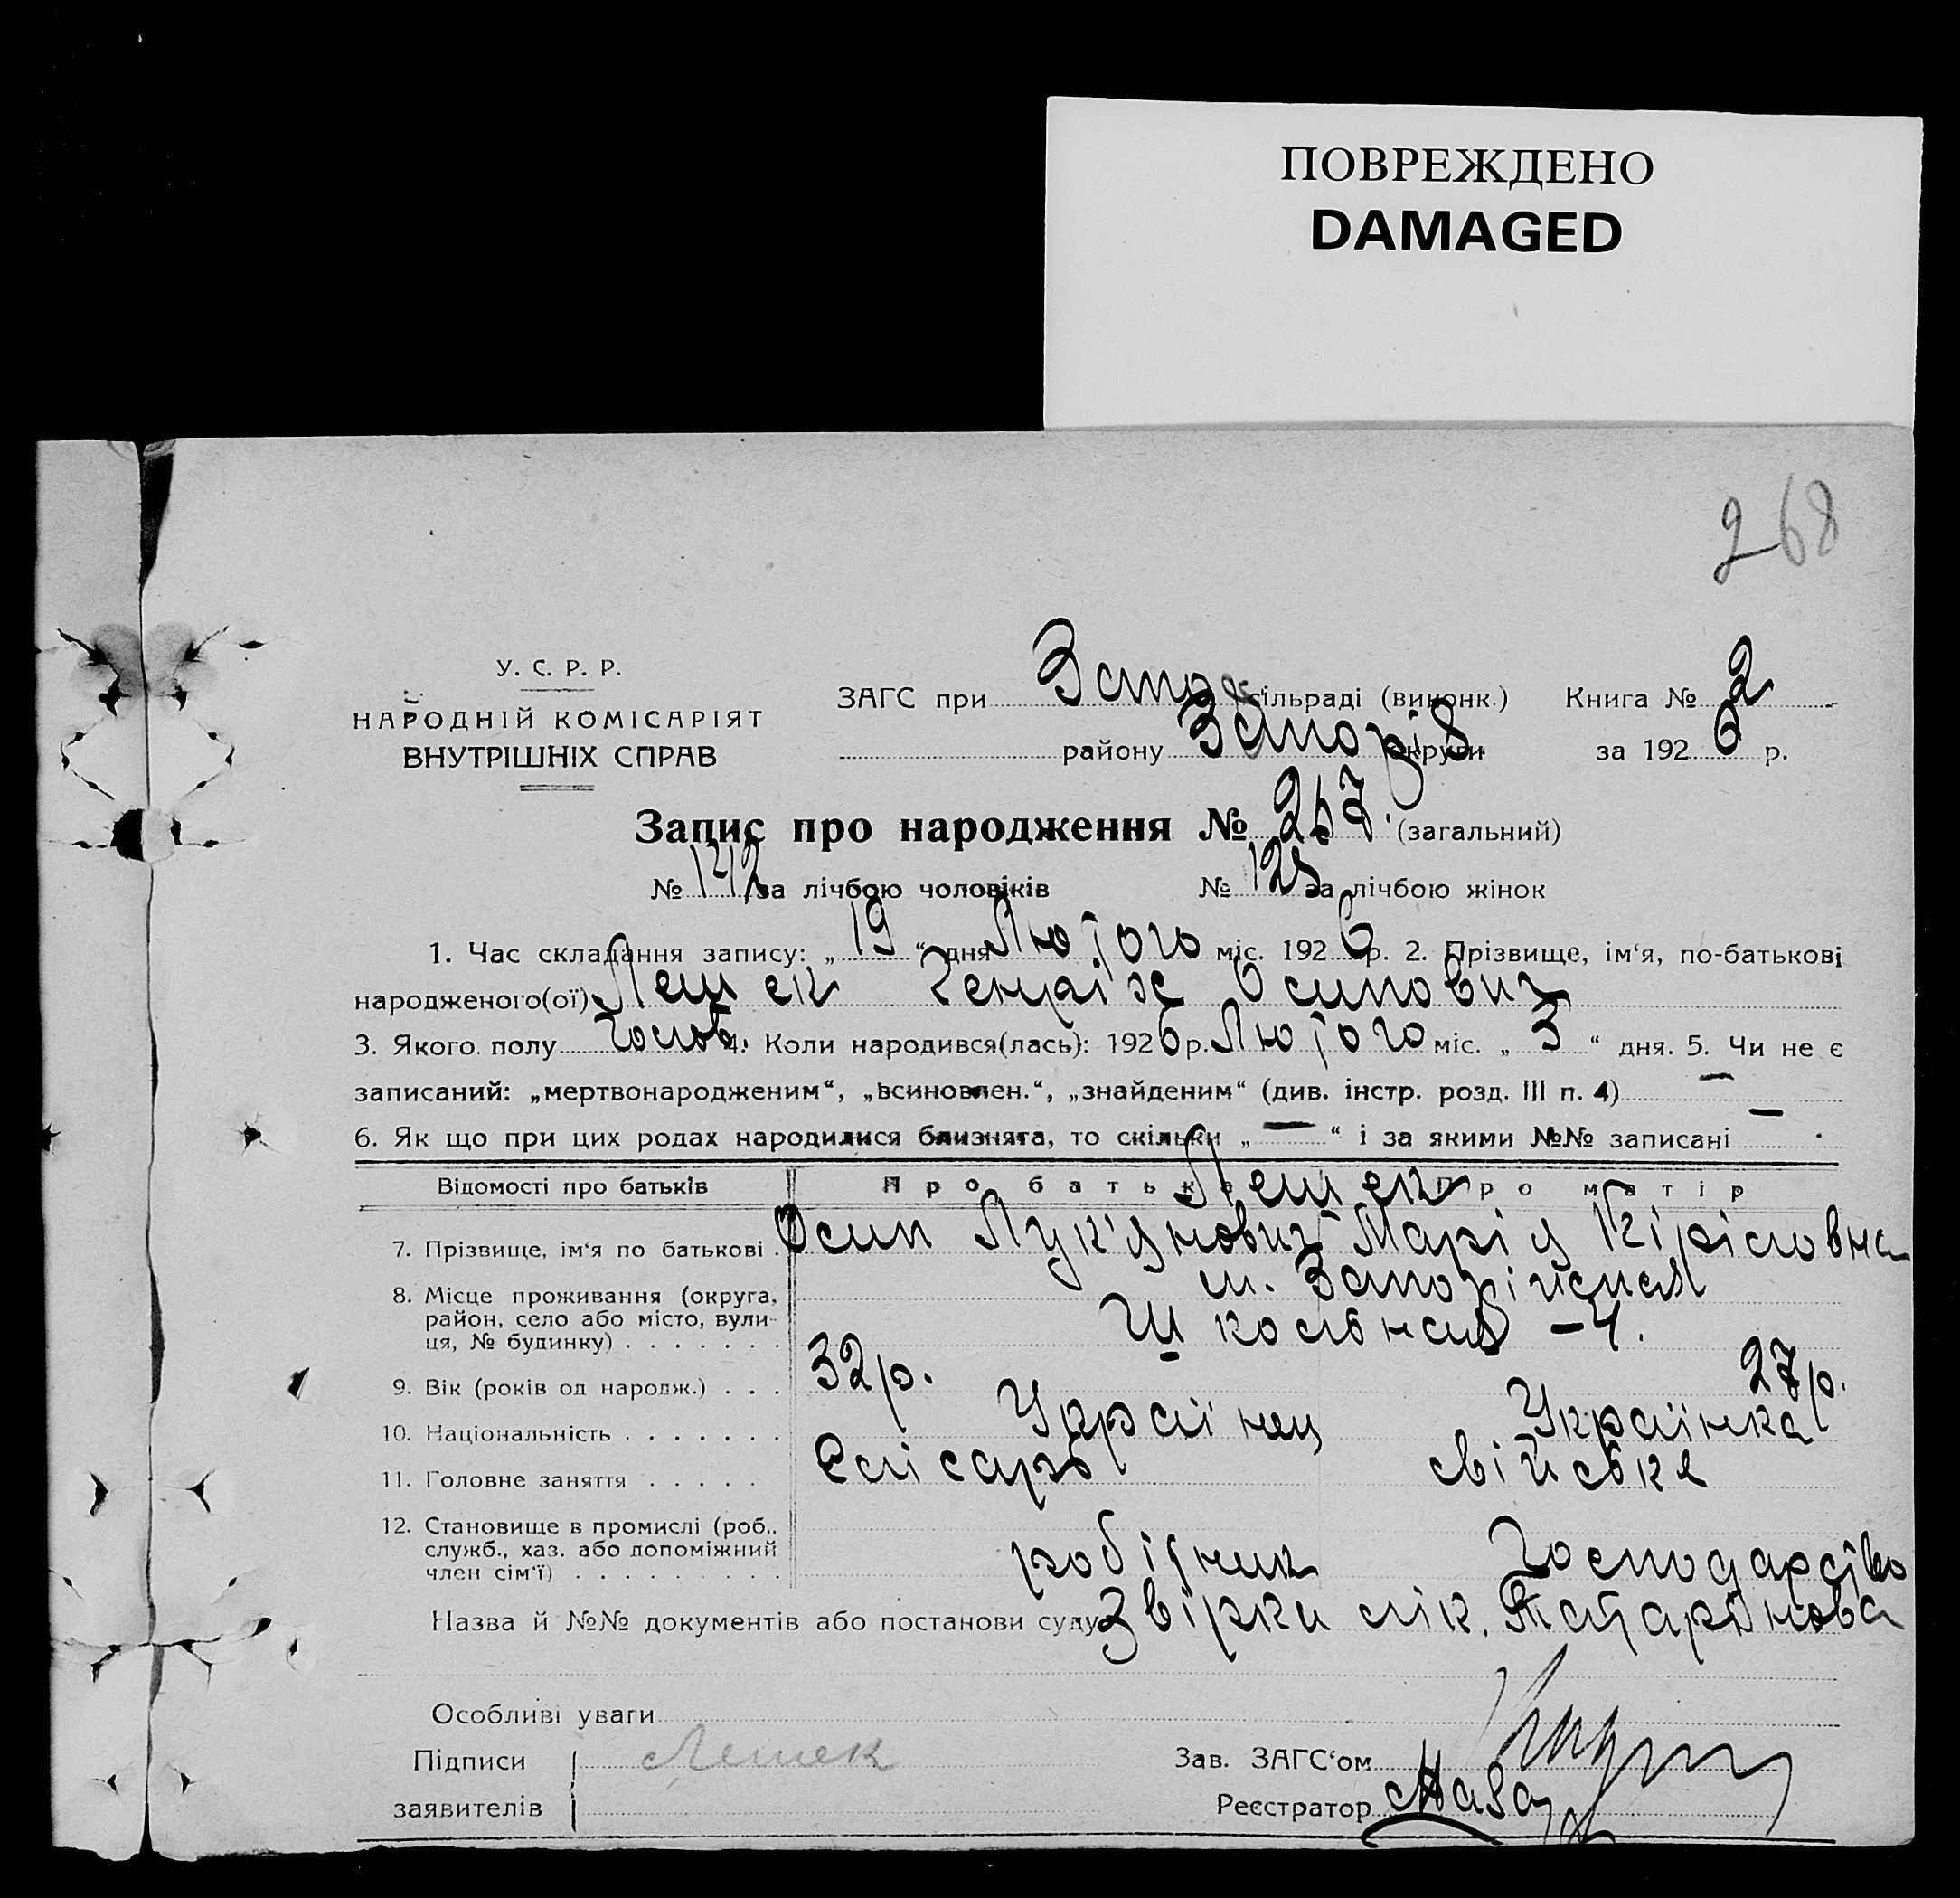 ПОВРЕЖДЕНО
DAMAGED
268
У. С. Р. Р.
НАРОДНІЙ КОМІСАРІЯТ
ВНУТРІШНІХ СПРАВ
ЗАГС при Запор сільраді (виконк.) Книга № 2
району Запоріз округи за 1926 р.
Запис про народження № 267. (загальний)
№ 142 за лічбою чоловіків № 125 за лічбою жінок
1. Час складання запису: „19“ дня Лютого міс. 1926 р. 2. Прізвище, ім‘я, по-батькові
народженого(ої) Лешек Осипович
3. Якого полу Чолов. 4. Коли народився(лась): 1926 р. Лютого міс. „3“ дня. 5. Чи не є
записаний: „мертвонародженим“, „всиновлен.“, „знайденим“ (див. інстр. розд. III п. 4) —
6. Як що при цих родах народилися близнята, то скільки „—“ і за якими №№ записані —.
Відомості про батьків Про батька Про матір
Лешек
7. Прізвище, ім‘я по батькові . Осип Лук'янович Марія Кіріловна
8. Місце проживання (округа, район, село або місто, вулиця, № будинку) . . . . . . . м. Запоріжжя
Шкільная – 4.
9. Вік (років од народж.) . . . 32 р. 27 р.
10. Національність . . . . . . . Українец Українка
11. Головне заняття . . . . . Слісарь свійське
12. Становище в промислі (роб., служб., хаз. або допоміжний член сім‘ї) . . . . . . . . . робітник Господарство
Назва й №№ документів або постанови суду Звірки лік. Татарінова
Особливі уваги
Підписи заявителів Лешек
Зав. ЗАГС‘ом
Реєстратор